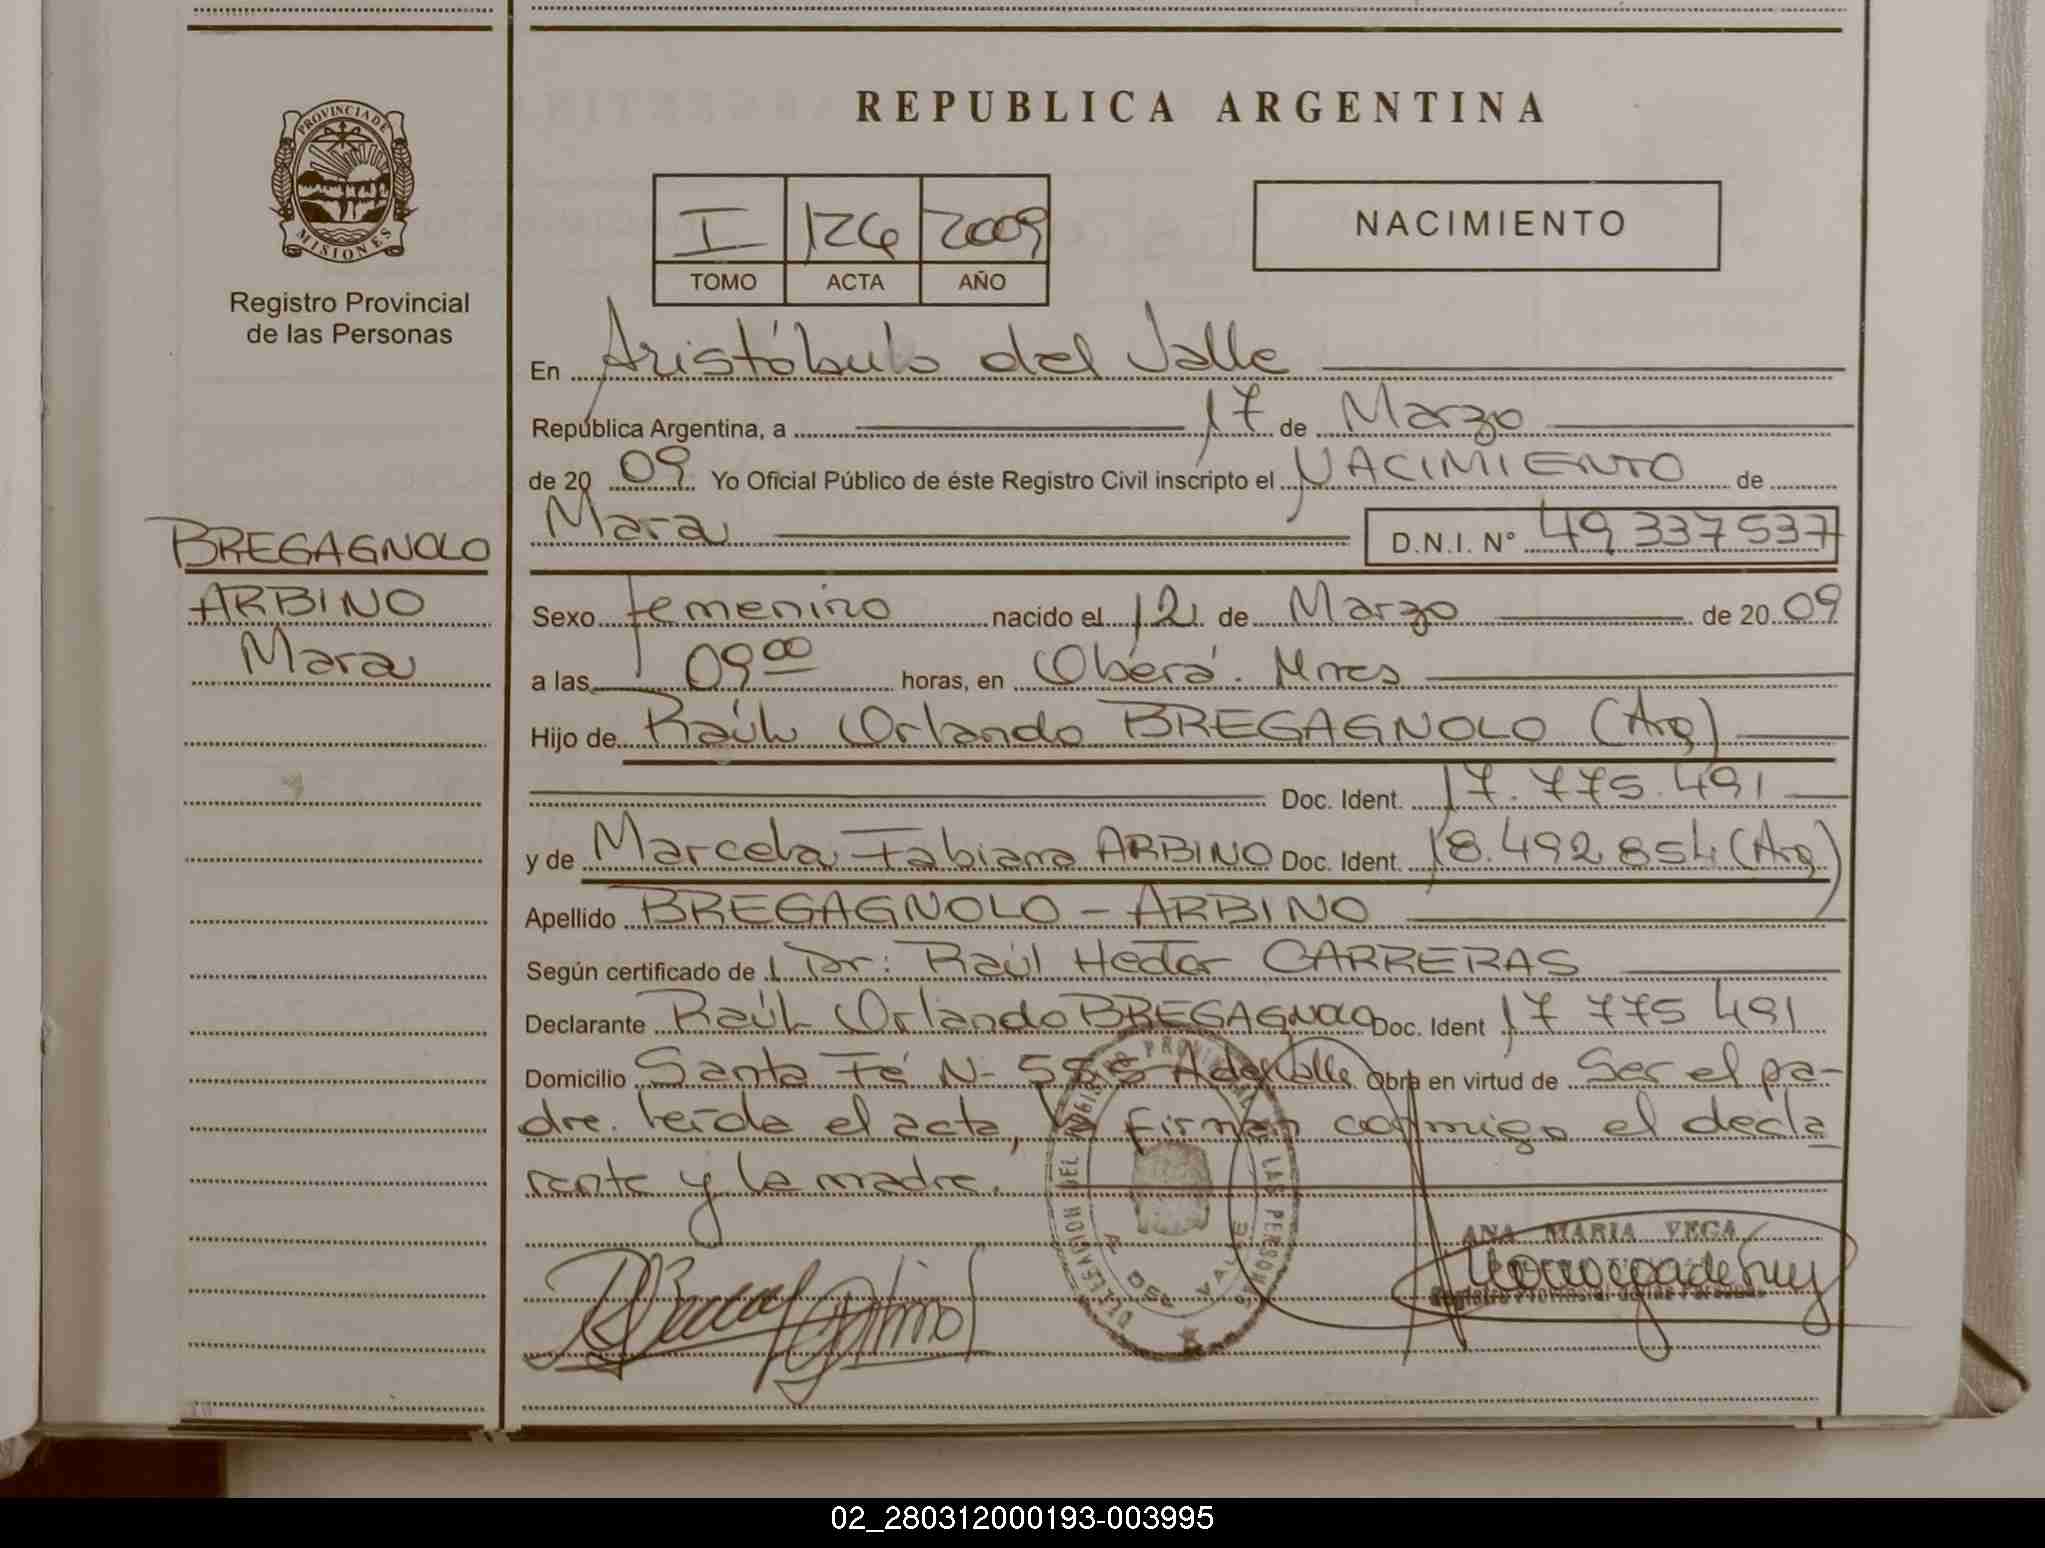 PROVINCIA DE
MISIONES
Registro Provincial
de las Personas
BREGAGNOLO
ARBINO
Mara
REPUBLICA ARGENTINA
I 126 2009
TOMO ACTA AÑO
NACIMIENTO
En Aristóbulo del Valle
República Argentina, a 17 de Marzo
de 2009 Yo Oficial Público de éste Registro Civil inscripto el NACIMIENTO de
Mara D.N.I. N° 49 337 537
Sexo femenino nacido el 12 de Marzo de 2009
a las 09 00 horas, en Oberá. Mnes
Hijo de Raúl Orlando BREGAGNOLO (Arg)
Doc. Ident. 17.775.491
y de Marcela Fabiana ARBINO Doc. Ident. 18.492.854 (Arg)
Apellido BREGAGNOLO - ARBINO
Según certificado de Dr: Raúl Hector CARRERAS
Declarante Raúl Orlando BREGAGNOLO Doc. Ident 17 775 491
Domicilio Santa Fé N- 588 A del Valle Obra en virtud de Ser el pa-
dre. leída el acta, firman conmigo el decla
rante y la madre.
DELEGACION DEL REGISTRO PROVINCIAL DE LAS PERSONAS
A. DEL VALLE
ANA MARIA VEGA
Registro Provincial de las Personas
02_280312000193-003995